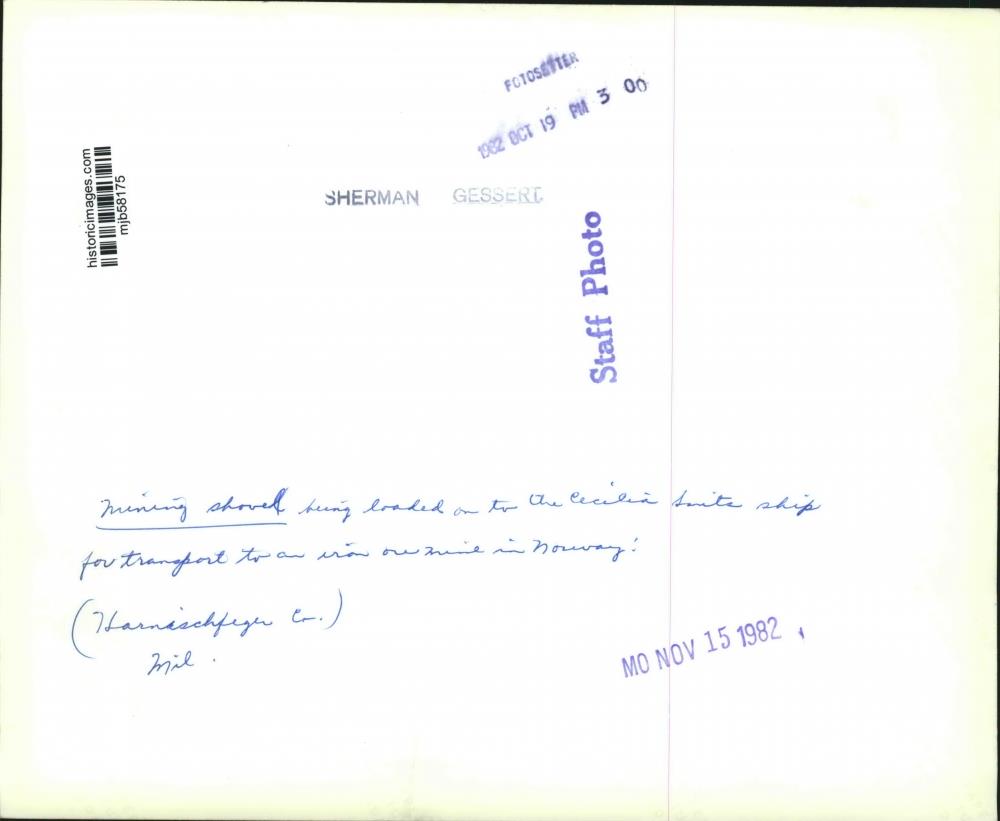 FOTOSETTER
1982 OCT 19 PM 3 00
historicimages.com
mjb58175
SHERMAN GESSERT
Staff Photo
Mining shovel being loaded on to the Cecilia Smits ship
for transport to an iron ore mine in Norway.
(Harnischfeger Co.)
Mil.
MO NOV 15 1982